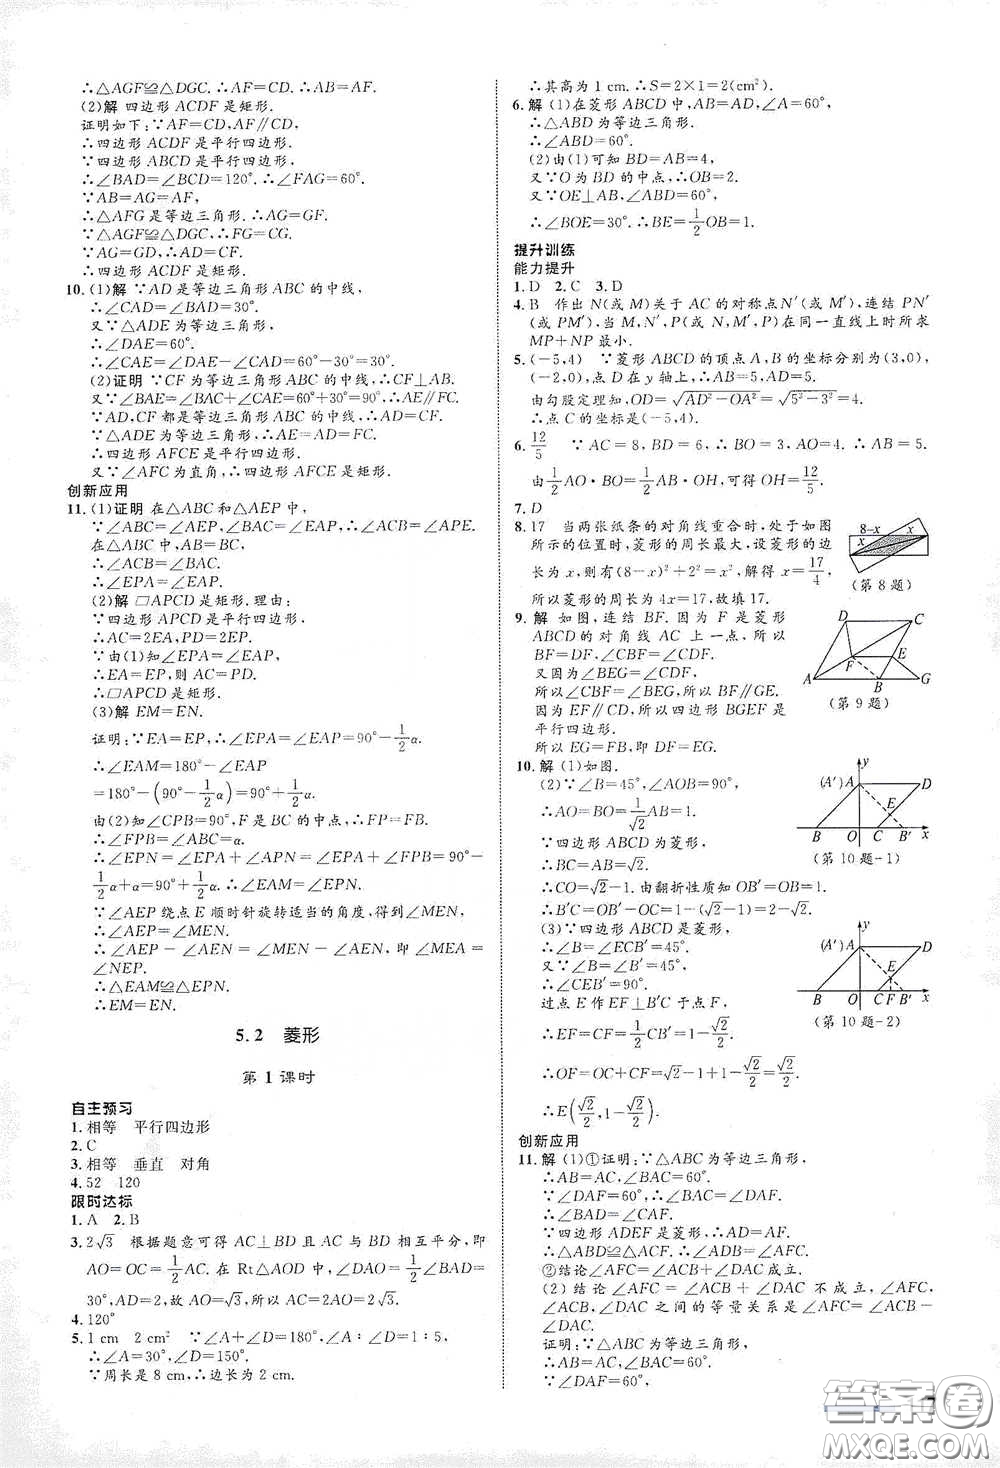 ∴△AGF≌△DGC. ∴AF=CD. ∴AB=AF.
(2)解 四边形 ACDF 是矩形.
证明如下:∵AF=CD,AF∥CD,
∴四边形 ACDF 是平行四边形.
∵四边形 ABCD 是平行四边形.
∴∠BAD=∠BCD=120°. ∴∠FAG=60°.
∵AB=AG=AF,
∴△AFG 是等边三角形. ∴AG=GF.
∵△AGF≌△DGC, ∴FG=CG.
∵AG=GD, ∴AD=CF.
∴四边形 ACDF 是矩形.
10. (1)解 ∵AD 是等边三角形 ABC 的中线,
∴∠CAD=∠BAD=30°.
又∵△ADE 为等边三角形,
∴∠DAE=60°.
∴∠CAE=∠DAE-∠CAD=60°-30°=30°.
(2)证明 ∵CF 为等边三角形 ABC 的中线, ∴CF⊥AB.
又∵∠BAE=∠BAC+∠CAE=60°+30°=90°, ∴AE∥FC.
∵AD,CF 都是等边三角形 ABC 的中线, ∴AD=CF.
又∵△ADE 为等边三角形, ∴AD=AE. ∴AE=CF.
∴四边形 AFCE 是平行四边形.
又∵∠AFC 为直角, ∴四边形 AFCE 是矩形.
创新应用
11. (1)证明 在△ABC 和△AEP 中,
∵∠ABC=∠AEP,∠BAC=∠EAP, ∴∠ACB=∠APE.
在△ABC 中,AB=BC,
∴∠ACB=∠BAC.
∴∠EPA=∠EAP.
(2)解 □APCD 是矩形.理由:
∵四边形 APCD 是平行四边形,
∴AC=2EA,PD=2EP.
∵由(1)知∠EPA=∠EAP,
∴EA=EP,则 AC=PD.
∴□APCD 是矩形.
(3)解 EM=EN.
证明:∵EA=EP, ∴∠EPA=∠EAP=90°-1/2α.
∴∠EAM=180°-∠EAP
=180°-(90°-1/2α)=90°+1/2α.
由(2)知∠CPB=90°,F 是 BC 的中点,∴FP=FB.
∴∠FPB=∠ABC=α.
∴∠EPN=∠EPA+∠APN=∠EPA+∠FPB=90°-
1/2α+α=90°+1/2α. ∴∠EAM=∠EPN.
∵∠AEP 绕点 E 顺时针旋转适当的角度,得到∠MEN,
∴∠AEP=∠MEN.
∴∠AEP-∠AEN=∠MEN-∠AEN,即∠MEA=
∠NEP.
∴△EAM≌△EPN.
∴EM=EN.
5.2 菱形
第 1 课时
自主预习
1. 相等 平行四边形
2. C
3. 相等 垂直 对角
4. 52 120
限时达标
1. A 2. B
3. 2√3 根据题意可得 AC⊥BD 且 AC 与 BD 相互平分,即
AO=OC=1/2AC. 在 Rt△AOD 中,∠DAO=1/2∠BAD=
30°,AD=2,故 AO=√3,所以 AC=2√3.
4. 120°
5. 1 cm 2 cm² ∵∠A+∠D=180°,∠A:∠D=1:5,
∴∠A=30°,∠D=150°.
∵周长是 8 cm, ∴边长为 2 cm.
∴其高为 1 cm. ∴S=2×1=2(cm²)
6. 解 (1)在菱形 ABCD 中,AB=AD,∠A=60°,
∴△ABD 为等边三角形.
∴∠ABD=60°.
(2)由(1)可知 BD=AB=4,
又∵O 为 BD 的中点, ∴OB=2.
又∵OE⊥AB,∠ABD=60°,
∴∠BOE=30°. ∴BE=1/2OB=1.
提升训练
能力提升
1. D 2. C 3. D
4. B 作出 N(或 M)关于 AC 的对称点 N′(或 M′),连结 PN′
(或 PM′),当 M,N′,P(或 N,M′,P)在同一直线上时所求
MP+NP 最小.
5. (-5,4) ∵菱形 ABCD 的顶点 A,B 的坐标分别为(3,0),
(-2,0),点 D 在 y 轴上, ∴AB=5,AD=5.
由勾股定理知,OD=√AD²-OA²=√5²-3²=4.
∴点 C 的坐标是(-5,4).
6. 12/5 ∵AC=8,BD=6,∴BO=3,AO=4. ∴AB=5.
由1/2AO·BO=1/2AB·OH,可得 OH=12/5.
7. D
8. 17 当两张纸条的对角线重合时,处于如图
所示的位置时,菱形的周长最大,设菱形的边
长为 x,则有(8-x)²+2²=x²,解得 x=17/4,
所以菱形的周长为 4x=17,故填 17.
8-x x
x
(第 8 题)
9. 解 如图,连结 BF. 因为 F 是菱形
ABCD 的对角线 AC 上一点,所以
BF=DF,∠CBF=∠CDF.
又因为∠BEG=∠CDF,
所以∠CBF=∠BEG,所以 BF∥GE.
因为 EF∥CD,所以四边形 BGEF 是
平行四边形.
所以 EG=FB,即 DF=EG.
D C
F E
A B G
(第 9 题)
10. 解 (1)如图.
(2)∵∠B=45°,∠AOB=90°,
∴AO=BO=1/√2AB=1.
∵四边形 ABCD 为菱形,
∴BC=AB=√2.
∴CO=√2-1. 由翻折性质知 OB′=OB=1,
∴B′C=OB′-OC=1-(√2-1)=2-√2.
(3)∵四边形 ABCD 是菱形,
∴∠B=∠ECB′=45°.
又∵∠B=∠CB′E=45°,
∴∠CEB′=90°.
过点 E 作 EF⊥B′C 于点 F,
∴EF=CF=1/2CB′=1-√2/2.
∴OF=OC+CF=√2-1+1-√2/2=√2/2.
∴E(√2/2,1-√2/2).
y
(A′)A D
E
B O C B′ x
(第 10 题-1)
y
(A′)A D
E
B O C F B′ x
(第 10 题-2)
创新应用
11. 解 (1)①证明:∵△ABC 为等边三角形,
∴AB=AC,∠BAC=60°.
∵∠DAF=60°, ∴∠BAC=∠DAF.
∴∠BAD=∠CAF.
∵四边形 ADEF 是菱形, ∴AD=AF.
∴△ABD≌△ACF. ∴∠ADB=∠AFC.
②结论∠AFC=∠ACB+∠DAC 成立.
(2)结论∠AFC=∠ACB+∠DAC 不成立.∠AFC,
∠ACB,∠DAC 之间的等量关系是∠AFC=∠ACB-
∠DAC.
证明:∵△ABC 为等边三角形,
∴AB=AC,∠BAC=60°.
∵∠DAF=60°,
答案卷
MXQE.COM